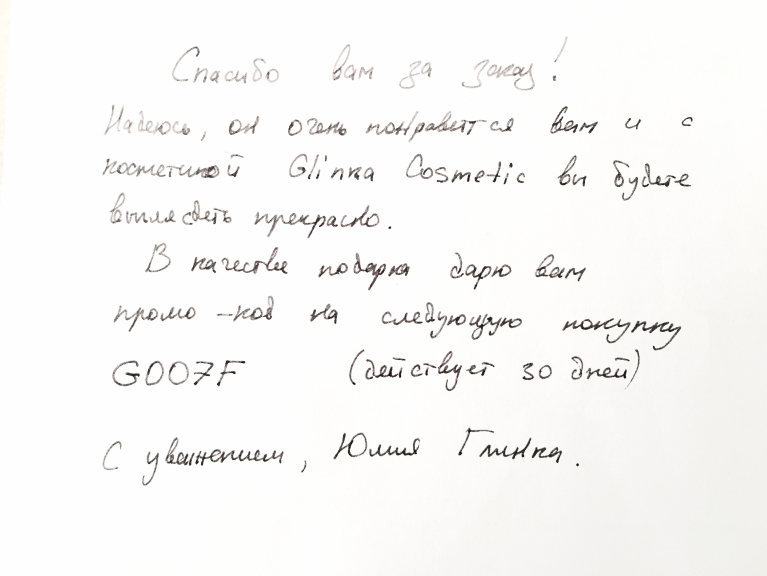 Спасибо вам за заказ!
Надеюсь, он очень понравится вам и с
косметикой Glinka Cosmetic вы будете
выглядеть прекрасно.
В качестве подарка дарю вам
промо-код на следующую покупку
G007F (действует 30 дней)
С уважением, Юлия Глинка.